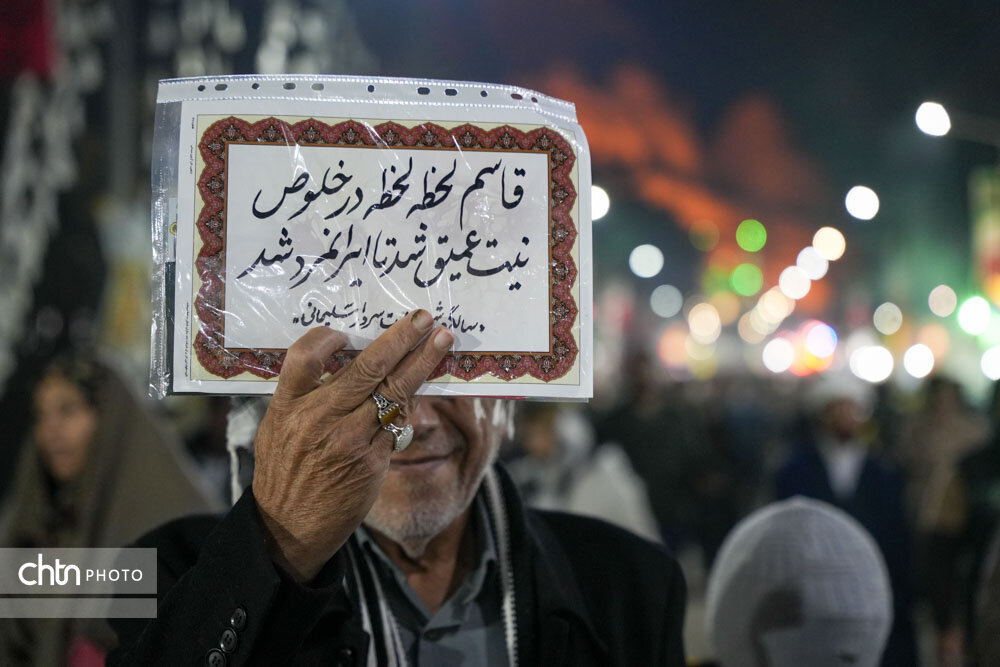 قاسم لحظه لحظه در خلوص
نیت عمیق شد تا ایرانمرد شد
سالگرد سردار سلیمانی
chtn PHOTO